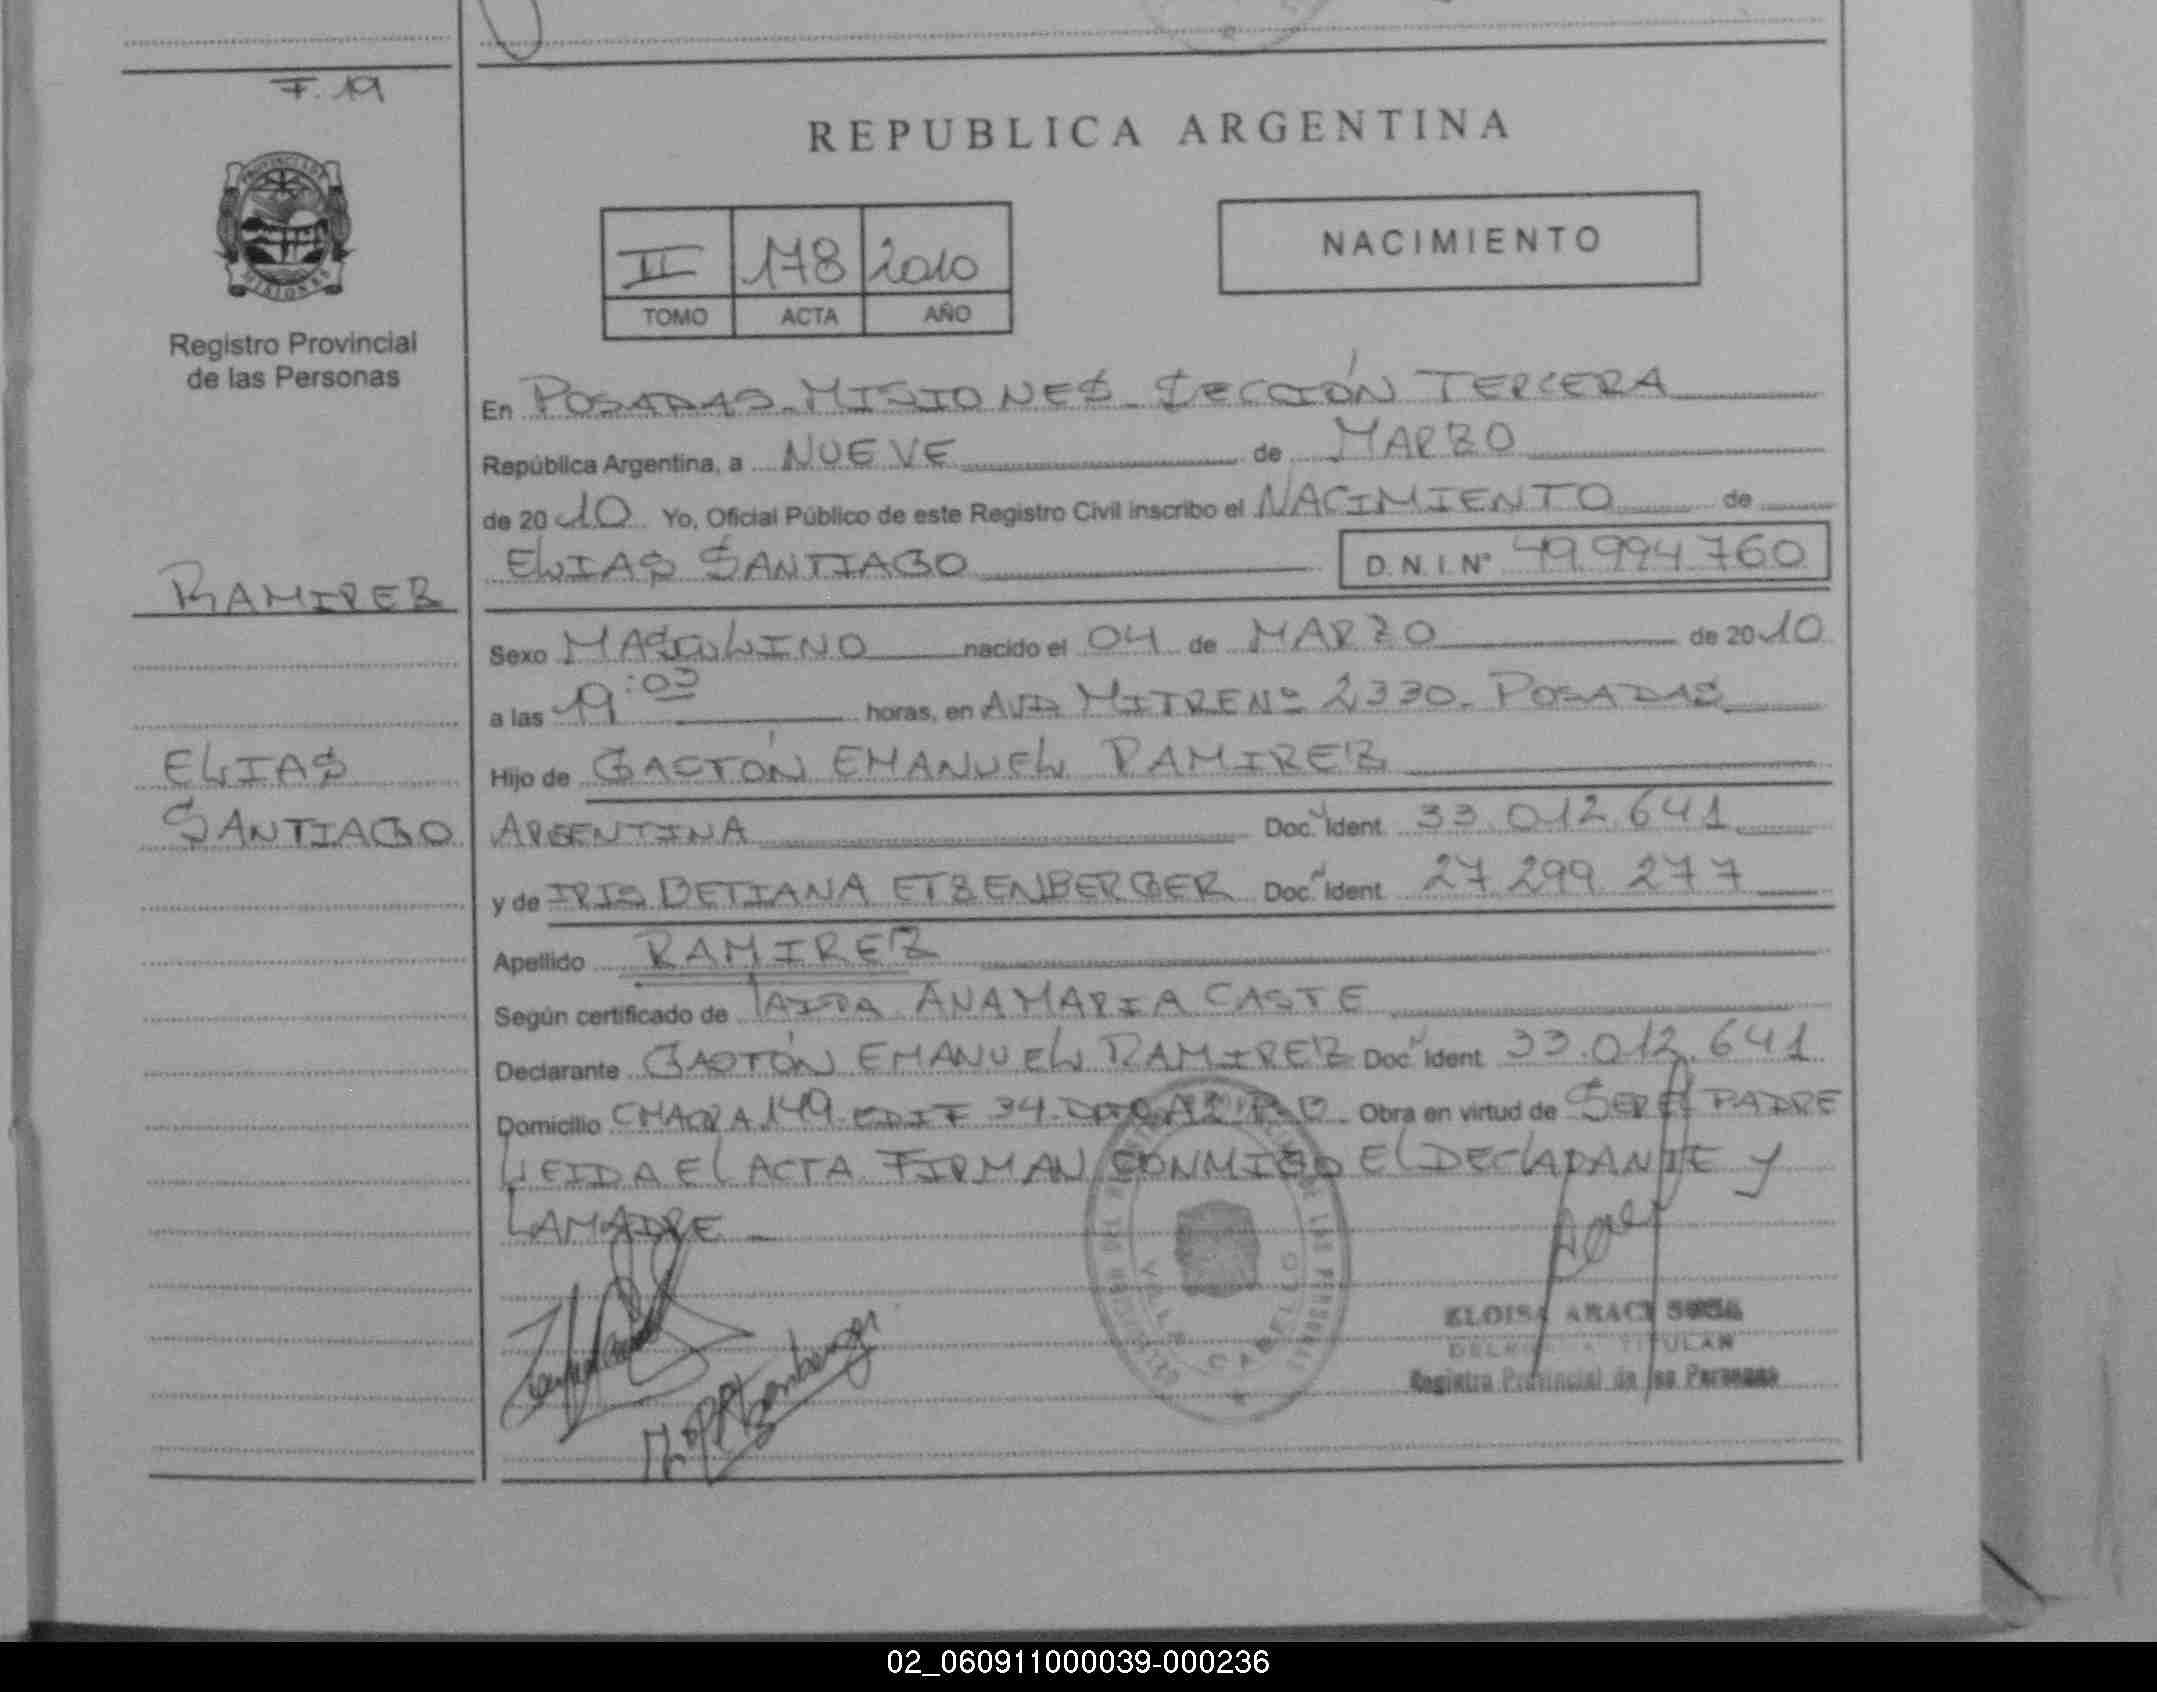 F. 19
REPUBLICA ARGENTINA
II 178 2010
TOMO ACTA AÑO
NACIMIENTO
Registro Provincial
de las Personas
En POSADAS-MISIONES-SECCIÓN TERCERA
República Argentina, a NUEVE de MARZO
de 2010 Yo, Oficial Público de este Registro Civil inscribo el NACIMIENTO de
ELIAS SANTIAGO D.N.I Nº 49.994.760
RAMIREZ
Sexo MASCULINO nacido el 04 de MARZO de 2010
a las 19:03 horas, en AVDA MITRE Nº 2330- POSADAS
ELIAS
Hijo de GASTÓN EMANUEL RAMIREZ
SANTIAGO
ARGENTINA Doc. Ident. 33.012.641
y de IRIS BETIANA ETZENBERGER Doc. Ident. 27 299 277
Apellido RAMIREZ
Según certificado de ANA MARIA CASTE
Declarante GASTÓN EMANUEL RAMIREZ Doc. Ident. 33.012.641
Domicilio CHACRA 149 EDIF 34 Obra en virtud de SER EL PADRE
LEIDA EL ACTA FIRMAN CONMIGO EL DECLARANTE Y
LA MADRE -
ELOISA ARACI SOSA
DELEGADA TITULAR
Registro Provincial de las Personas
02_060911000039-000236